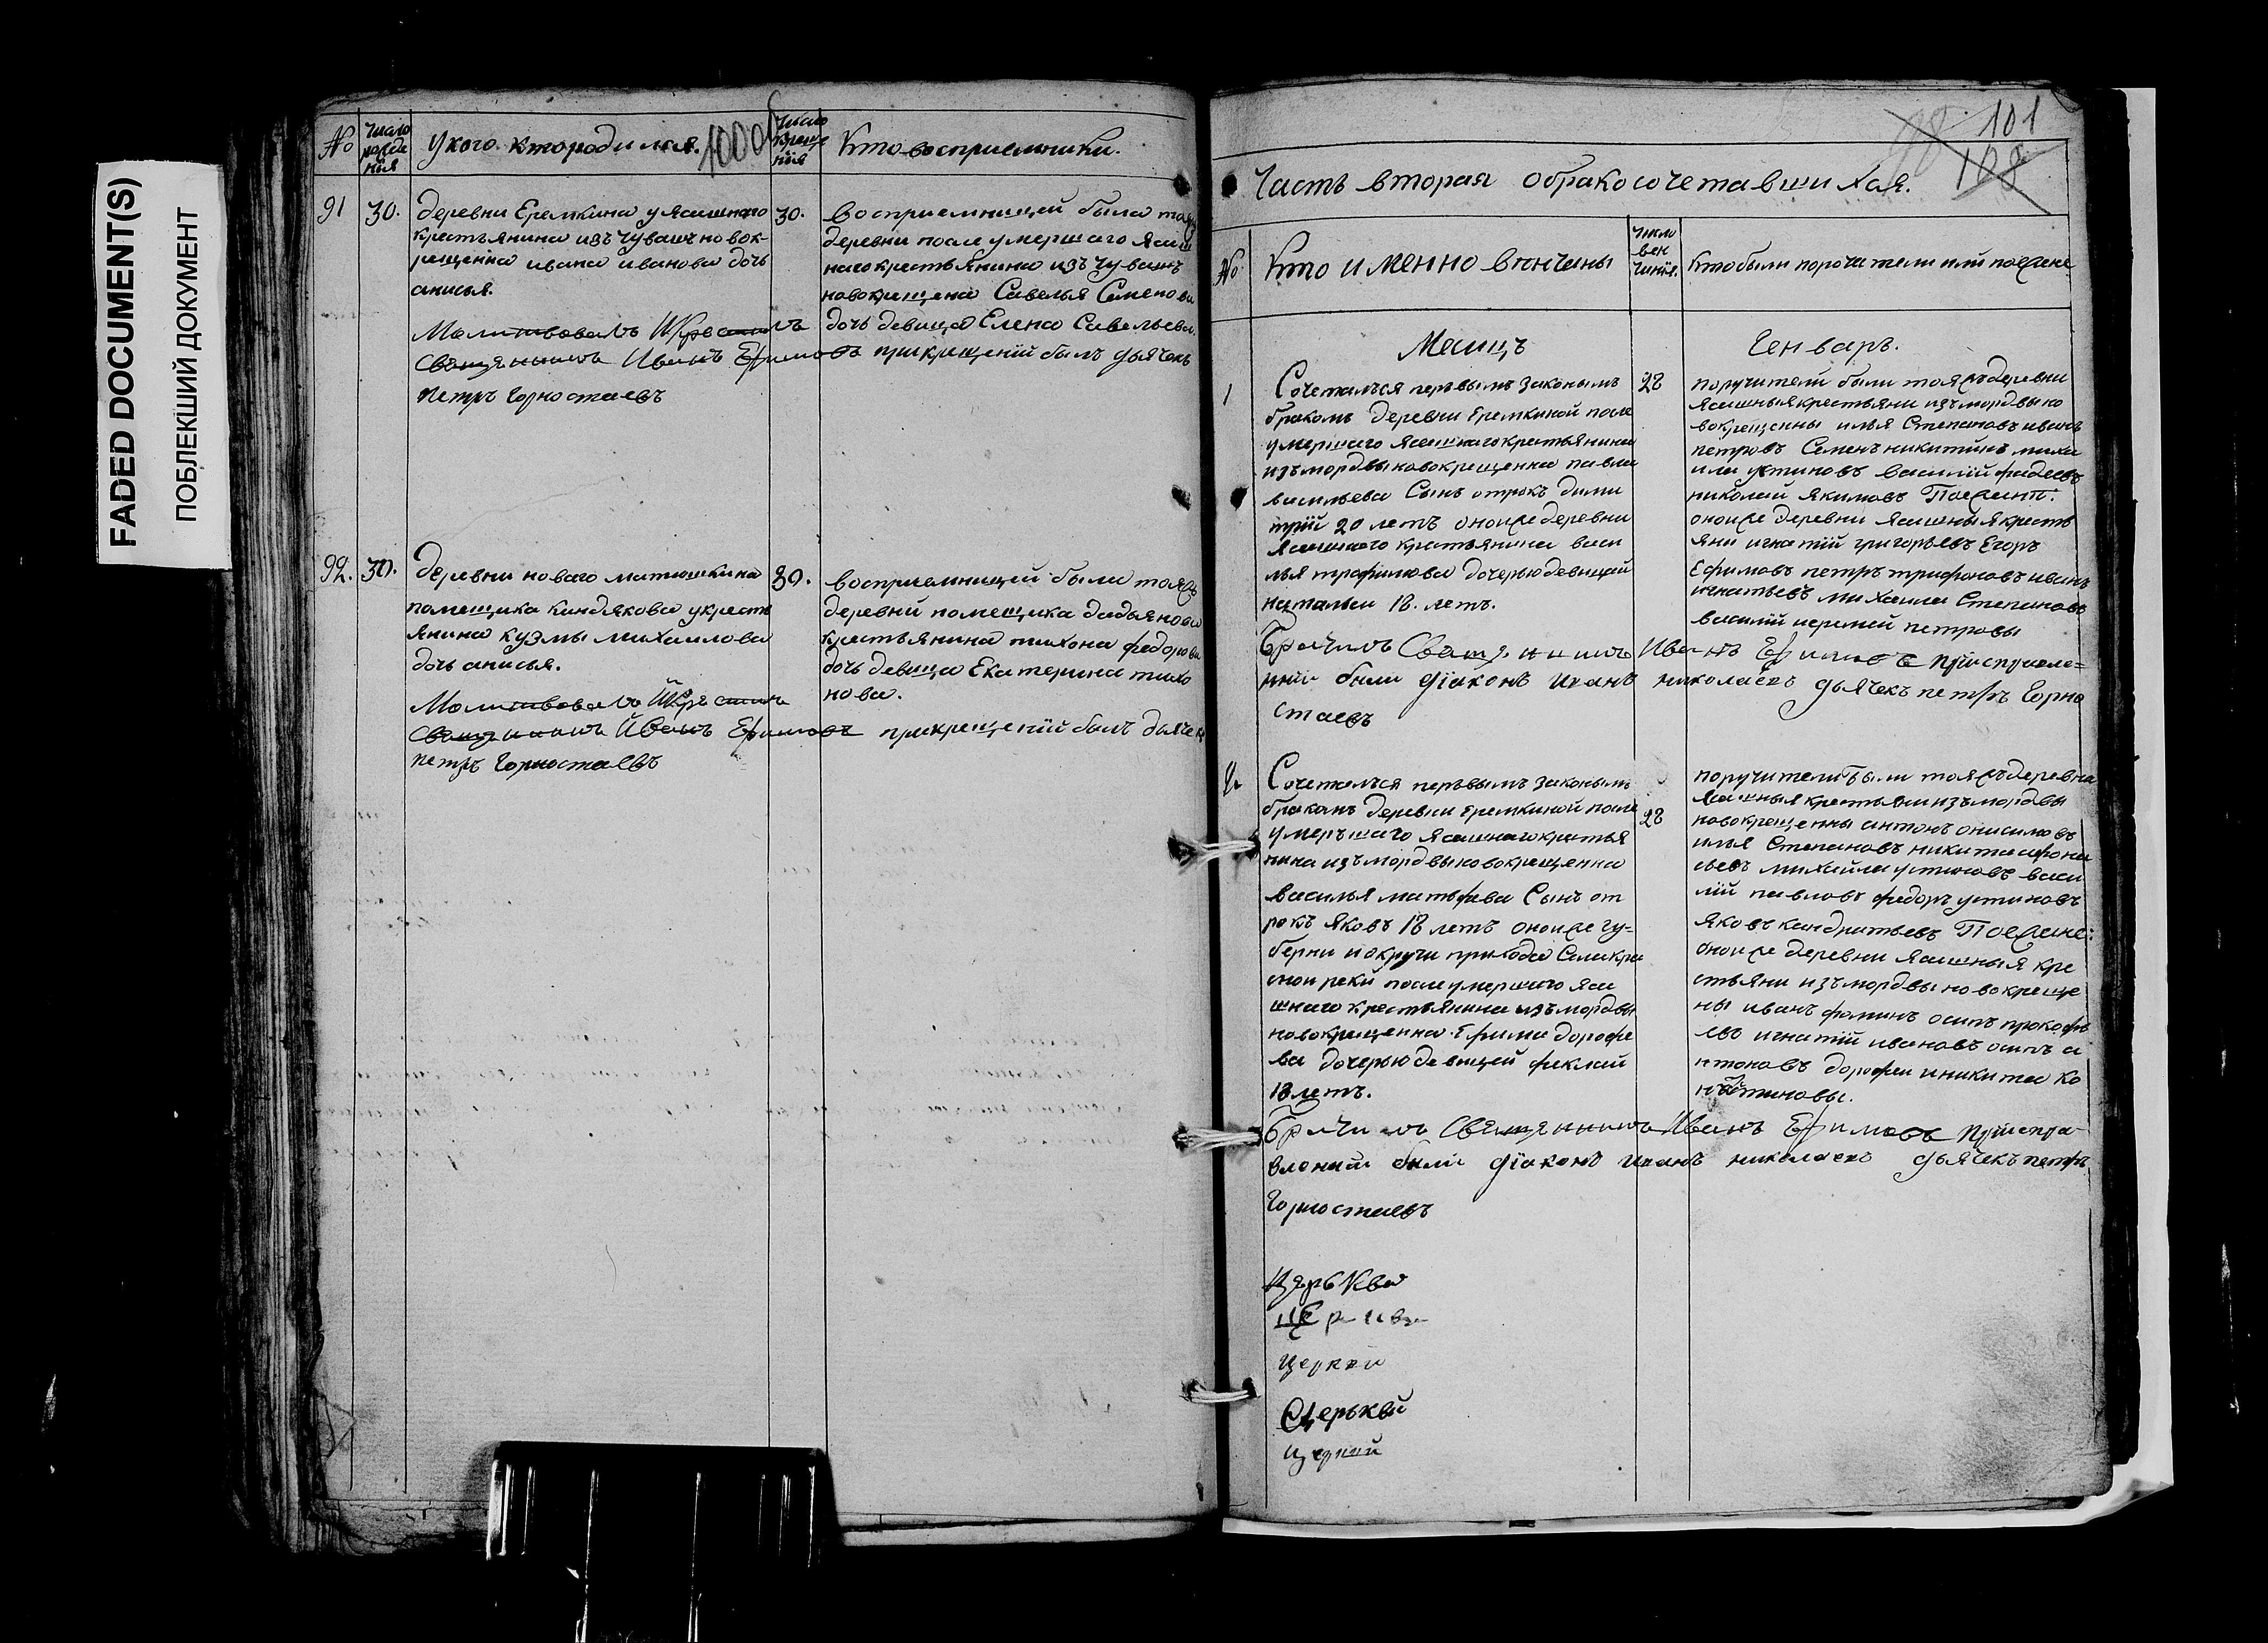 FADED DOCUMENT(S)
ПОБЛЕКШИЙ ДОКУМЕНТ
№
число рожде нїя
у кого кто родился.
число креще нїя
Кто восприемники.
91
30.
деревни Еремкина у ясашнаго
крестьянина изъ чувашъ новок-
рещенна ивана иванова дочь
анисья.
Молитвовалъ и крестилъ
Священникъ Иванъ Ефимовъ при крещенїи былъ дьячекъ
Петръ Горностаевъ
30.
восприемницей была тояжъ
деревни после умершаго ясаш
наго крестьянина изъ чувашъ
новокрещена Савелья Семенова
дочь девица Елена Савельева.
92.
30.
деревни новаго матюшкина
помещика киндякова у кресть
янина кузмы михаилова
дочь анисья.
Молитвовалъ и крестилъ
Священникъ Иванъ Ефимовъ при крещенїи былъ дьячекъ
петръ Горностаевъ
30.
восприемницей была тояжъ
деревни помещика дадьянова
крестьянина тихона федорова
дочь девица Екатерина тихо
нова.
101
108
Часть вторая о бракосочетавшихся.
№
Кто именно венчаны
число вен чанїя.
Кто были поручители или поезжане
Месяцъ
Генварь.
1
Сочетался первымъ законымъ
бракомъ деревни Еремкиной после
умершаго ясашнаго крестьянина
изъ мордвы новокрещенна павла
васильева Сынъ отрокъ дими
трїй 20 летъ оноиже деревни
ясашнаго крестьянина васи
лья трофимова дочерью девицей
наталей 18. летъ.
Брачилъ Священникъ Иванъ Ефимовъ при справле=
нїи были дїаконъ иванъ николаевъ дьячекъ петръ Горно
стаевъ
28
поручители были тояжъ деревни
ясашныя крестьяни изъ мордвы но
вокрещенны илья Степановъ иванъ
петровъ Семенъ никитинъ миха
ила устиновъ василїй фадеевъ
николай якимовъ Поезжане:
оноиже деревни ясашныя кресть
яни игнатїй григорьевъ Егоръ
Ефимовъ петръ трифоновъ иванъ
игнатьевъ михаила Степановъ
василїй иеремей петровы
2
Сочетался первымъ законымъ
бракомъ деревни Еремкиной после
умершаго ясашнаго крестья
нина изъ мордвы новокрещенна
василья матфева Сынъ от
рокъ яковъ 18 летъ оноиже гу=
берни и округи прихода Села кра
снои реки после умершаго яса
шнаго крестьянина изъ мордвы
новокрещенна Ефима дорофе
ва дочерью девицей феклай
18 летъ.
Брачилъ Священникъ Иванъ Ефимовъ при спра-
вленїи были дїаконъ иванъ николаевъ дьячекъ петръ
Горностаевъ
28
поручители были тояжъ деревни
ясашныя крестьяни изъ мордвы
новокрещенны антонъ онисимовъ
илья Степановъ никита афона
сьевъ михайла устиновъ васи
лїй павловъ федоръ устиновъ
яковъ кондратьевъ Поезжане:
оноиже деревни ясашныя кре
стьяни изъ мордвы новокреще
ны иванъ фоминъ осипъ прокофь
евъ игнатїй ивановъ осипъ а
нтоновъ дорофеи и никита ко
нстантиновы.
Церьква
Церкви
Церькви